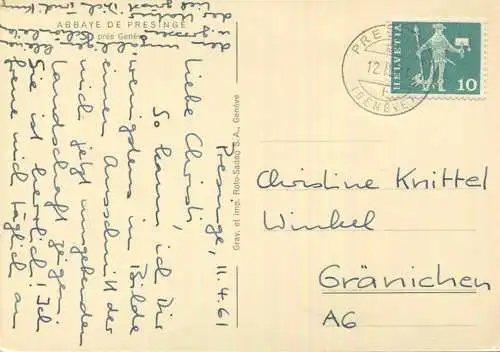 ABBAYE DE PRESINGE
près Genève
Presinge, 11.4.61
Liebe Christi,
So kann ich Dir
wenigstens im Bilde
einen Ausschnitt der
mich jetzt umgebenden
Landschaft zeigen.
Sie ist herrlich! Ich
freue mich täglich an
der
Grav. et impr. Roto-Sadag S.A., Genève
PRE
12.
(GENÈVE)
HELVETIA
10
Christine Knittel
Winkel
Gränichen
AG